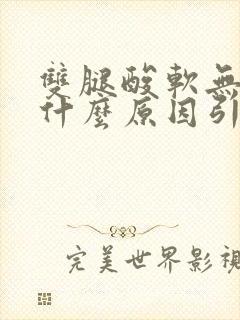 雙腿酸軟無
什麼原因引
完美世界影視